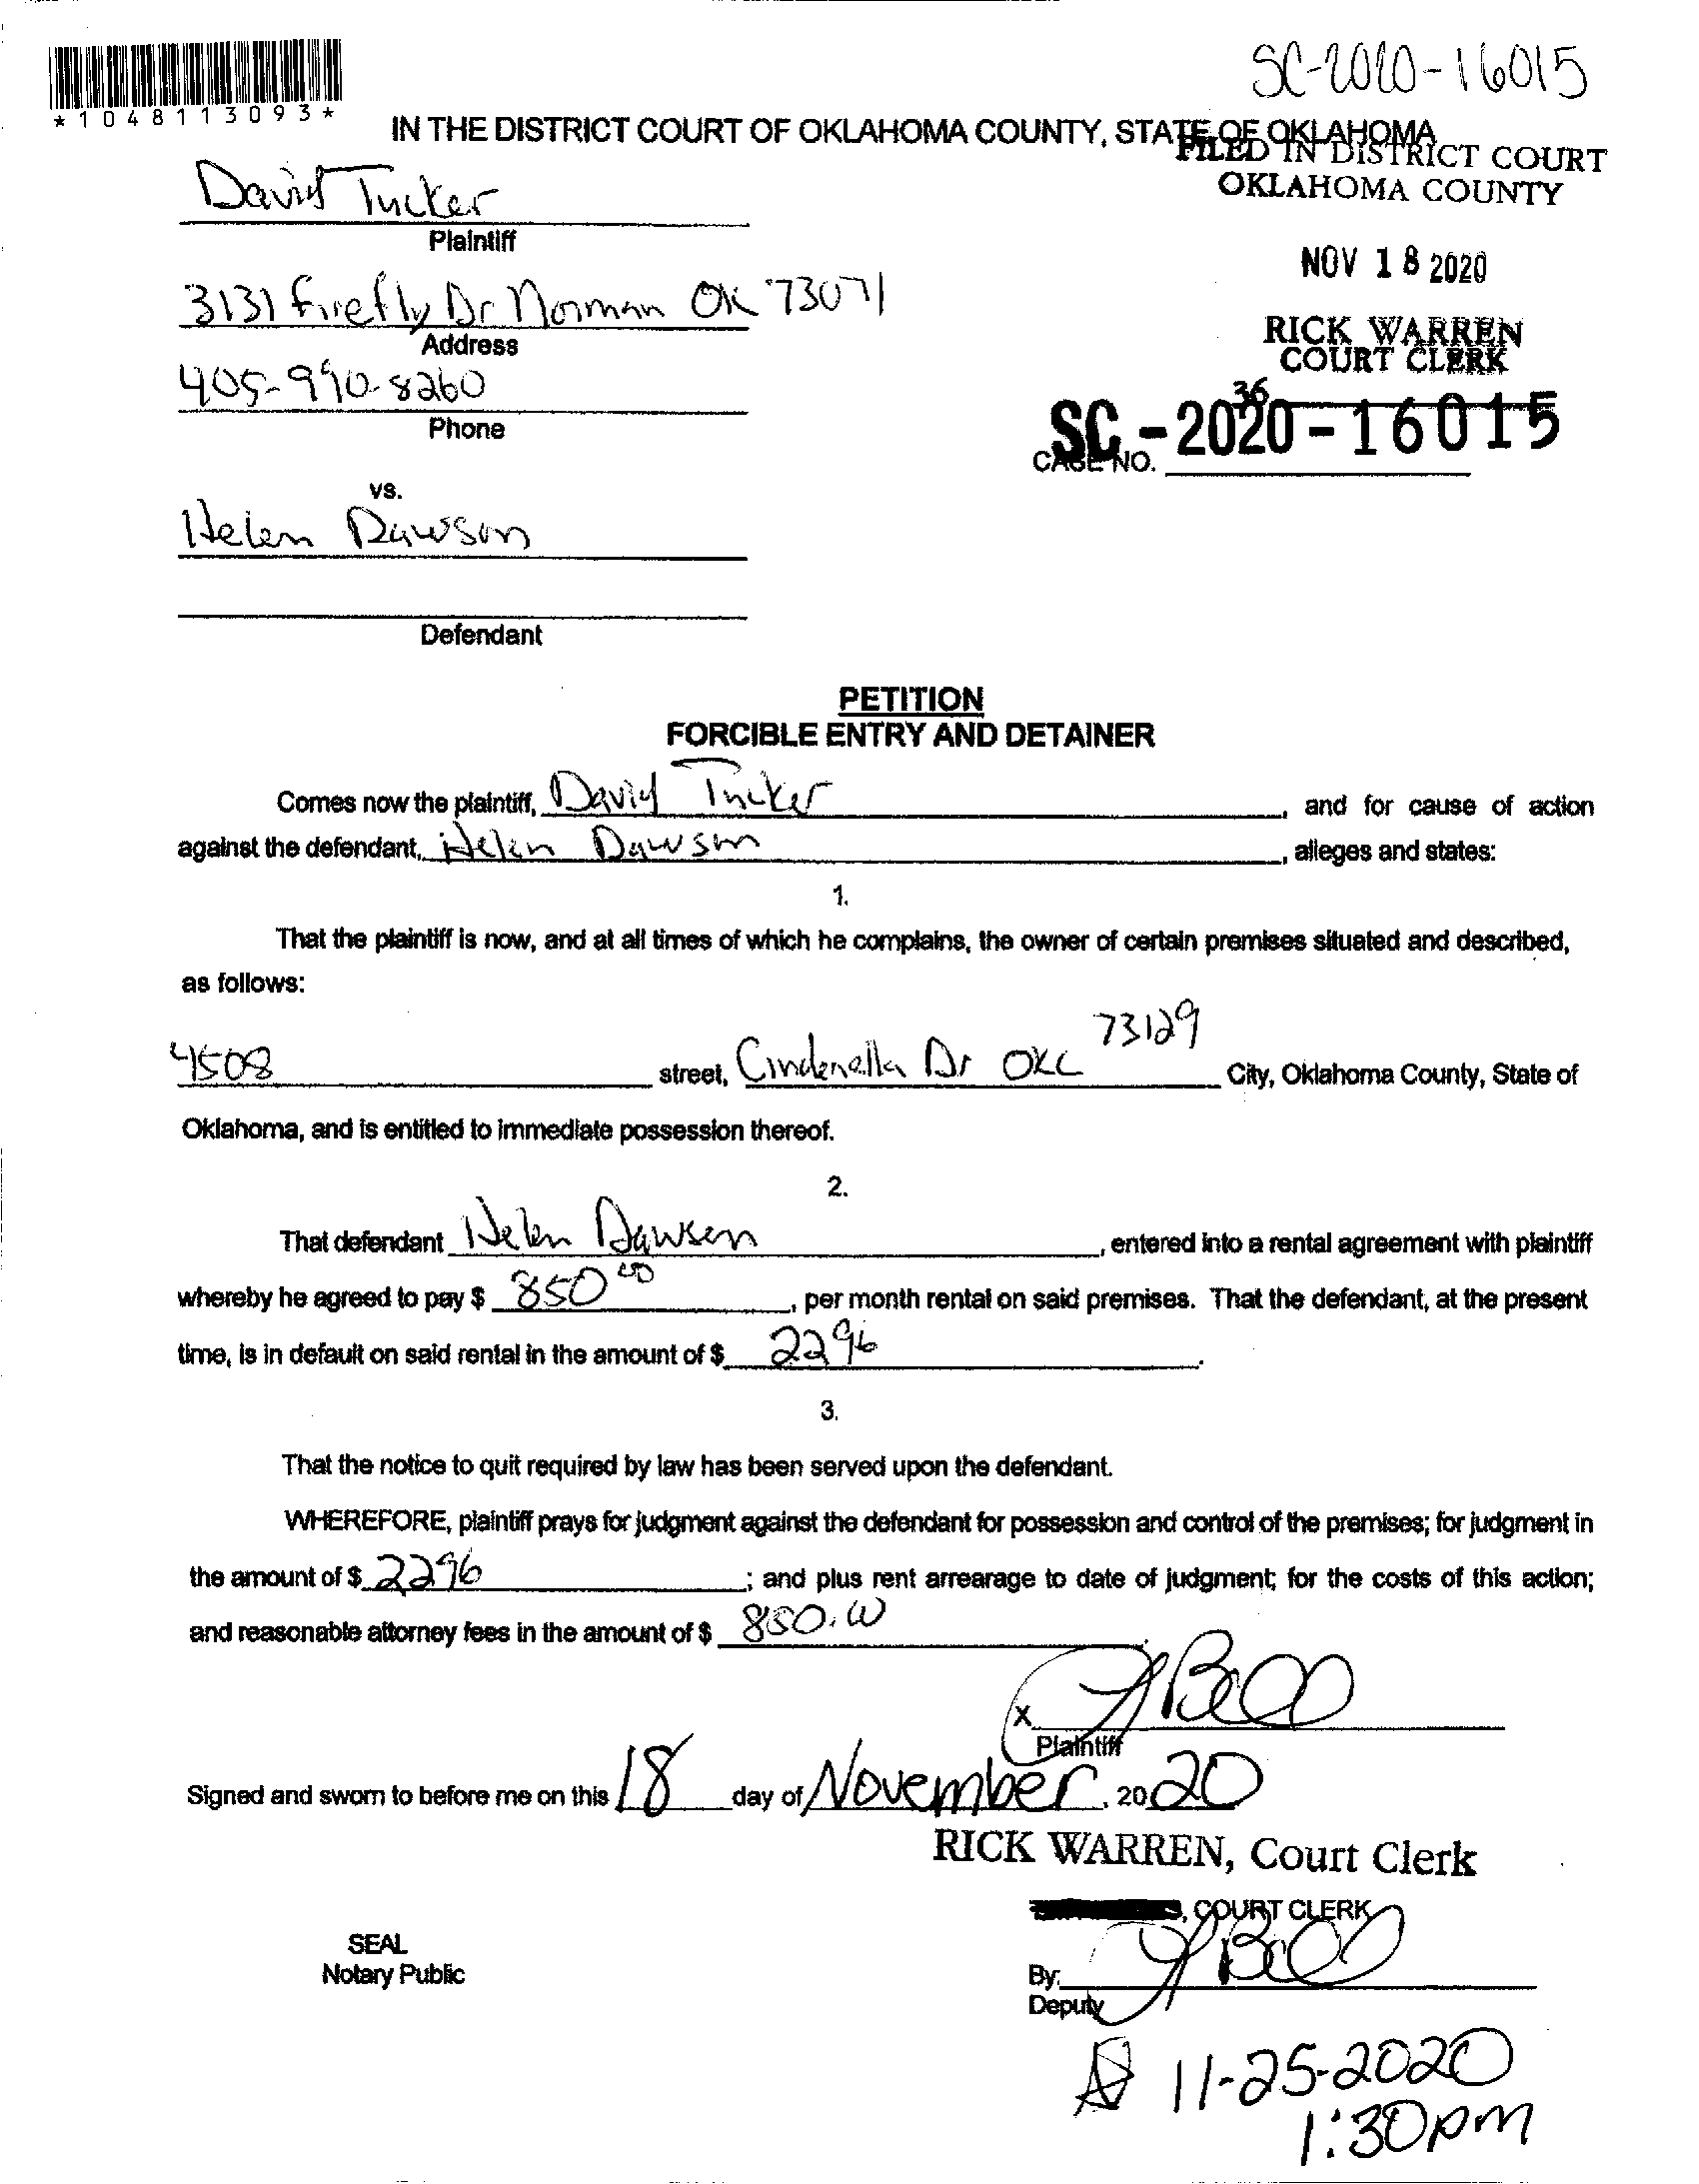 SC-2020-16015
*1048113093*
IN THE DISTRICT COURT OF OKLAHOMA COUNTY, STATE OF OKLAHOMA
FILED IN DISTRICT COURT
OKLAHOMA COUNTY
David Tucker
Plaintiff
NOV 18 2020
3131 Firefly Dr Norman OK 73071
Address
RICK WARREN
COURT CLERK
405-990-8260
Phone
36
SC-2020-16015
CASE NO.
vs.
Helen Dawson
Defendant
PETITION
FORCIBLE ENTRY AND DETAINER
Comes now the plaintiff, David Tucker, and for cause of action
against the defendant, Helen Dawson, alleges and states:
1.
That the plaintiff is now, and at all times of which he complains, the owner of certain premises situated and described,
as follows:
4508 street, Cinderella Dr OKC 73129 City, Oklahoma County, State of
Oklahoma, and is entitled to immediate possession thereof.
2.
That defendant Helen Dawson, entered into a rental agreement with plaintiff
whereby he agreed to pay $ 850 00, per month rental on said premises. That the defendant, at the present
time, is in default on said rental in the amount of $ 2296.
3.
That the notice to quit required by law has been served upon the defendant.
WHEREFORE, plaintiff prays for judgment against the defendant for possession and control of the premises; for judgment in
the amount of $ 2296; and plus rent arrearage to date of judgment; for the costs of this action;
and reasonable attorney fees in the amount of $ 850.00
X
Plaintiff
Signed and sworn to before me on this 18 day of November, 2020
RICK WARREN, Court Clerk
, COURT CLERK
SEAL
Notary Public
By:
Deputy
11-25-2020
1:30pm